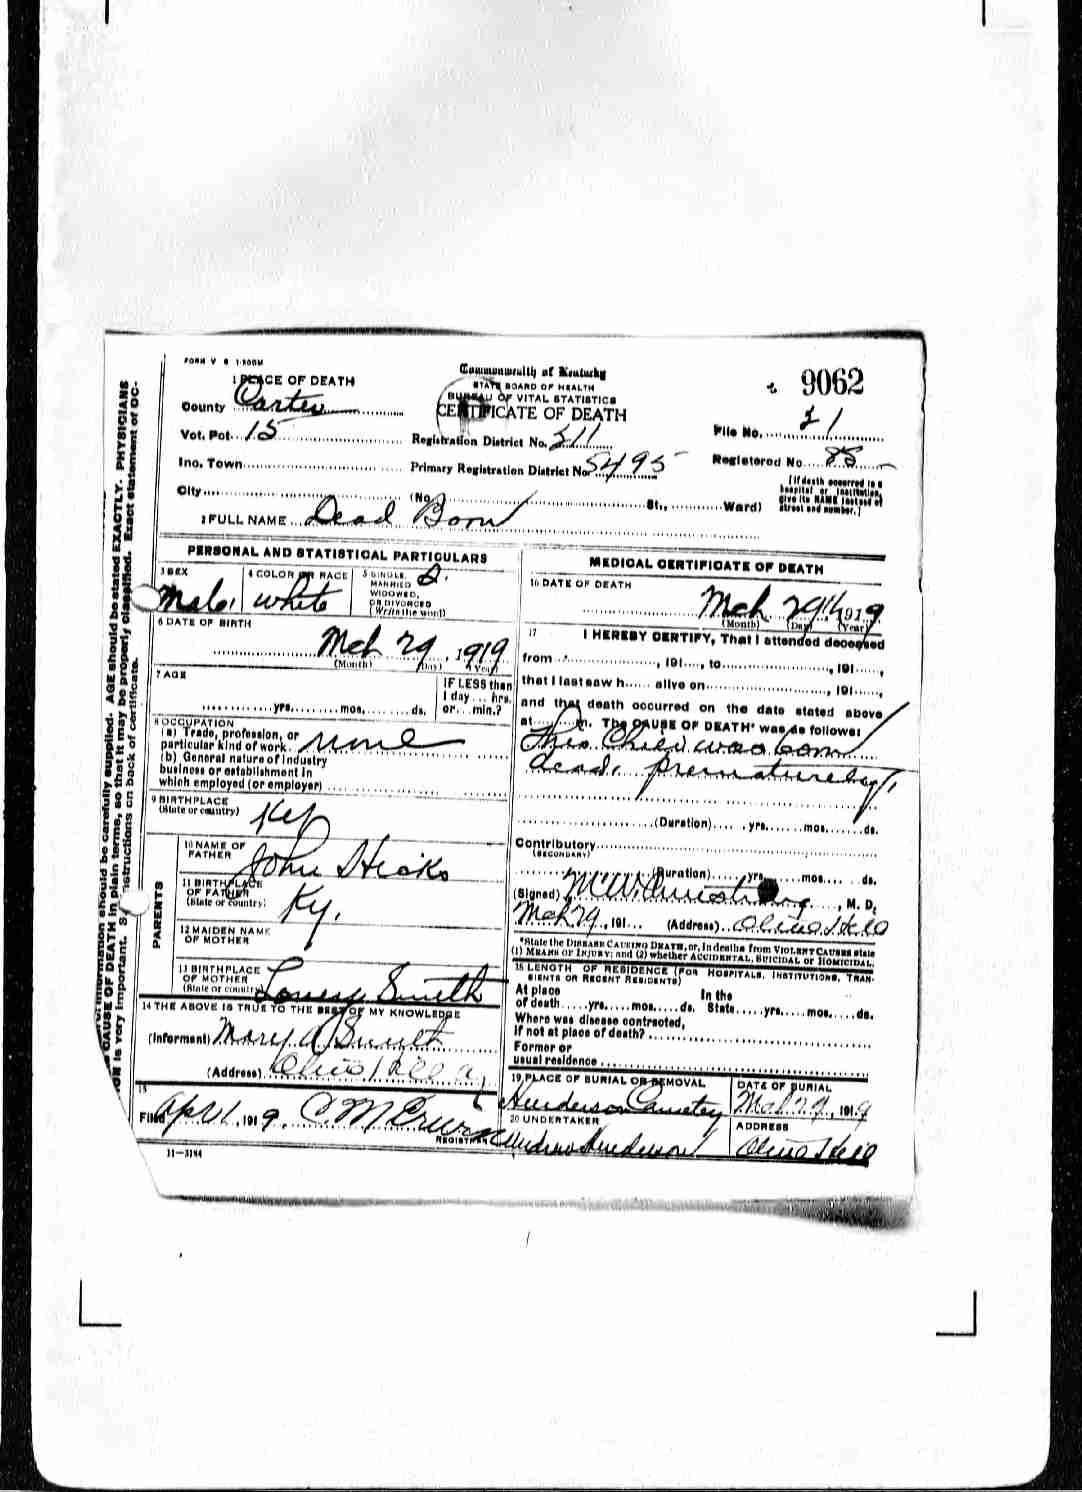 FORM V S 1-500M
Commonwealth of Kentucky
STATE BOARD OF HEALTH
BUREAU OF VITAL STATISTICS
CERTIFICATE OF DEATH
9062
1 PLACE OF DEATH
County Carter
Vot. Pct. 15
Registration District No. 211
File No. 21
Ino. Town
Primary Registration District No. 5495
Registered No. 85
City
(No. St., Ward)
[If death occurred in a hospital or institution, give its NAME instead of street and number.]
2 FULL NAME Dead Born
PERSONAL AND STATISTICAL PARTICULARS
3 SEX
Male
4 COLOR OR RACE
white
5 SINGLE, MARRIED, WIDOWED, OR DIVORCED (Write the word)
S.
6 DATE OF BIRTH
Mch 29, 1919
(Month) (Day) (Year)
7 AGE
yrs. mos. ds.
IF LESS than 1 day ... hrs. or ... min.?
8 OCCUPATION
(a) Trade, profession, or
particular kind of work. none
(b) General nature of industry
business or establishment in
which employed (or employer)
9 BIRTHPLACE
(State or country)
Ky
PARENTS
10 NAME OF FATHER
John Hicks
11 BIRTHPLACE OF FATHER
(State or country)
Ky.
12 MAIDEN NAME OF MOTHER
13 BIRTHPLACE OF MOTHER
(State or country)
Smith
14 THE ABOVE IS TRUE TO THE BEST OF MY KNOWLEDGE
(Informant) Mary A Smith
(Address) Olive Hill Ky
15
Filed Apr 1, 1919. REGISTRAR
11-3184
MEDICAL CERTIFICATE OF DEATH
16 DATE OF DEATH
Mch 29th 1919
(Month) (Day) (Year)
17 I HEREBY CERTIFY, That I attended deceased
from , 191...., to , 191....,
that I last saw h...... alive on , 191....,
and that death occurred on the date stated above
at m. The CAUSE OF DEATH* was as follows:
This Child was born
dead, prematurely,
(Duration) yrs. mos. ds.
Contributory
(SECONDARY)
(Duration) yrs. mos. ds.
(Signed) , M. D.
Mch 29, 191... (Address) Olive Hill
*State the DISEASE CAUSING DEATH, or, in deaths from VIOLENT CAUSES state
(1) MEANS OF INJURY; and (2) whether ACCIDENTAL, SUICIDAL or HOMICIDAL.
18 LENGTH OF RESIDENCE (FOR HOSPITALS, INSTITUTIONS, TRANSIENTS OR RECENT RESIDENTS)
At place of death yrs. mos. ds. In the State yrs. mos. ds.
Where was disease contracted,
if not at place of death?
Former or
usual residence
19 PLACE OF BURIAL OR REMOVAL
Henderson Cemetery
DATE OF BURIAL
Mch 29, 1919
20 UNDERTAKER
Andrew Henderson
ADDRESS
Olive Hill